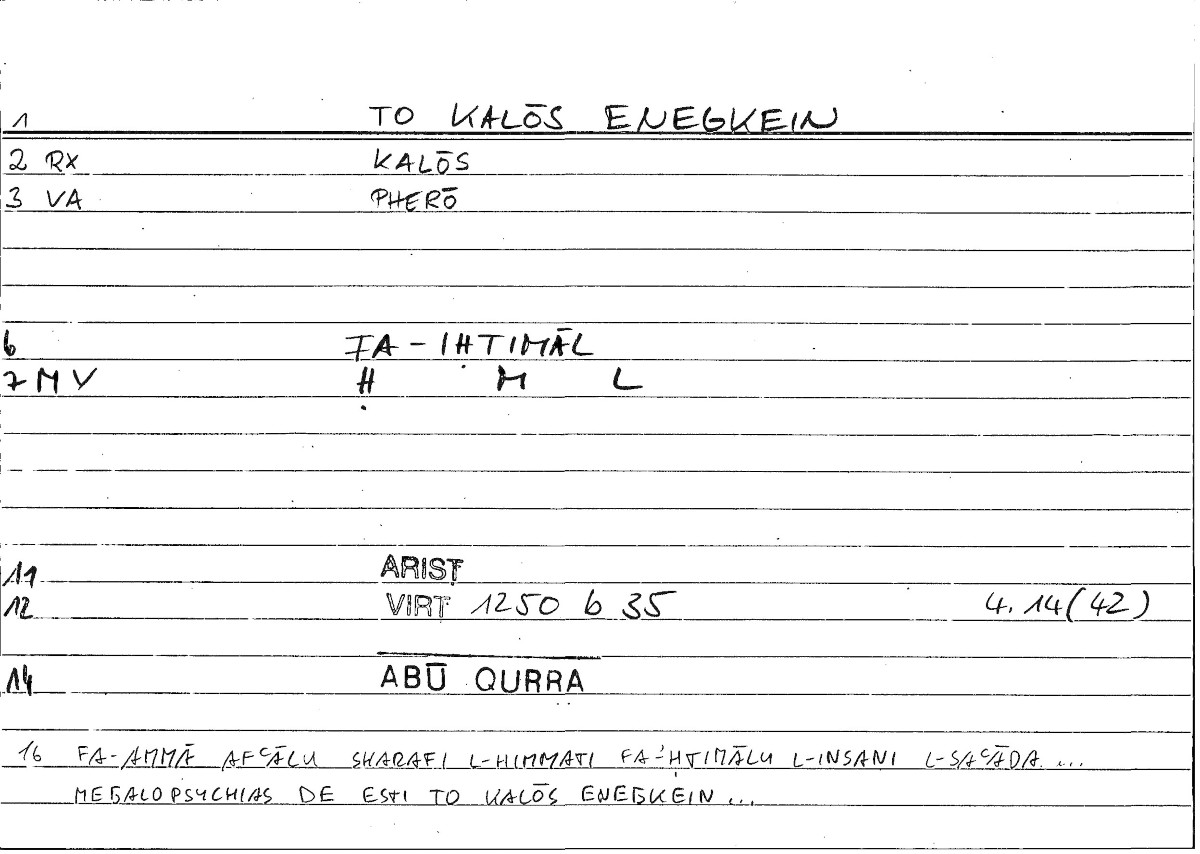 1 TO KALŌS ENEGKEIN
2 RX KALŌS
3 VA PHERŌ
6 FA-IḤTIMĀL
7 MV Ḥ M L
11 ARIST
12 VIRT 1250 b 35 4.14(42)
14 ABŪ QURRA
16 FA-AMMĀ AFʿĀLU SHARAFI L-HIMMATI FA-ʾḤTIMĀLU L-INSANI L-SAʿĀDA...
MEGALOPSYCHIAS DE ESTI TO KALŌS ENEGKEIN...